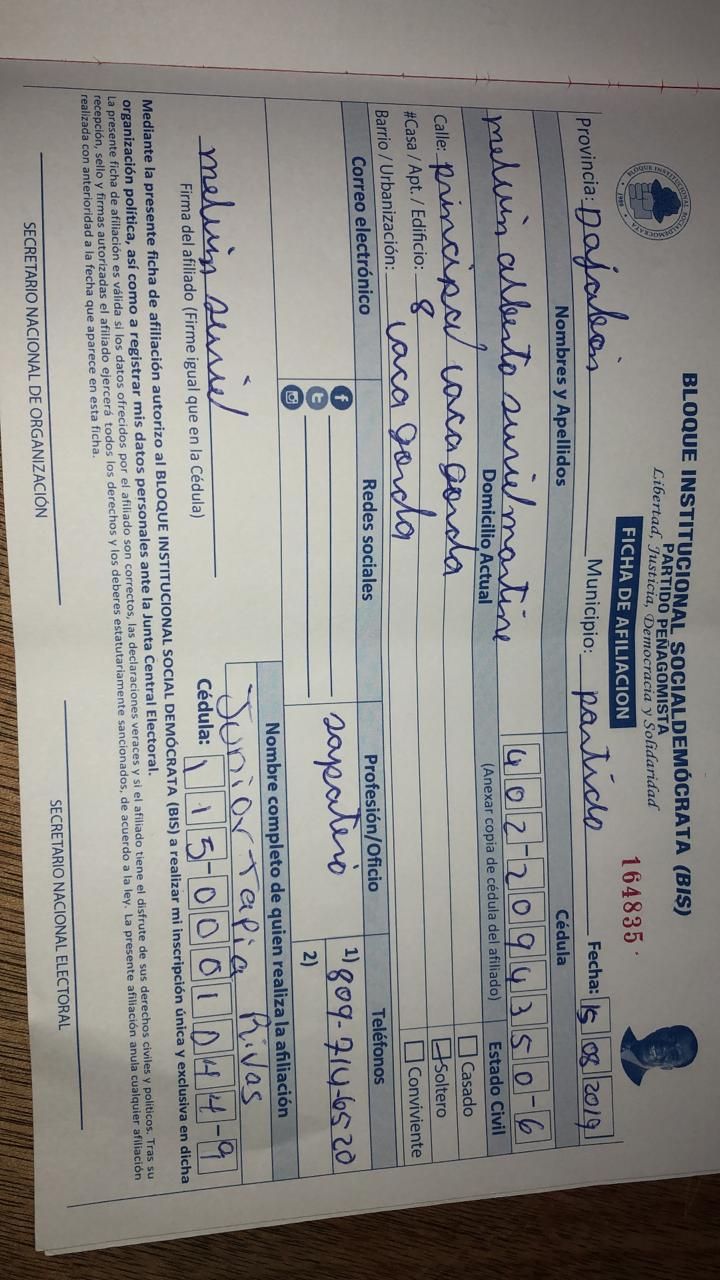 BLOQUE INSTITUCIONAL SOCIALDEMÓCRATA (BIS)
PARTIDO PEÑAGOMISTA
Libertad, Justicia, Democracia y Solidaridad
FICHA DE AFILIACION
164835
BLOQUE INSTITUCIONAL SOCIALDEMOCRATA
Provincia: Dajabon Municipio: partido Fecha: 15 08 2019
Nombres y Apellidos Cédula
melvin alberto suriel martine 402-2094350-6
Domicilio Actual (Anexar copia de cédula del afiliado) Estado Civil
Calle: principal vaca gorda Casado
#Casa / Apt. / Edificio: 8 Soltero
Barrio / Urbanización: vaca gorda Conviviente
Correo electrónico Redes sociales Profesión/Oficio Teléfonos
sapaterio 1) 809-714-6520
2)
Nombre completo de quien realiza la afiliación
Junior Tapia Rivas
melvin suriel Cédula: 115-0001044-9
Firma del afiliado (Firme igual que en la Cédula)
Mediante la presente ficha de afiliación autorizo al BLOQUE INSTITUCIONAL SOCIAL DEMÓCRATA (BIS) a realizar mi inscripción única y exclusiva en dicha
organización política, así como a registrar mis datos personales ante la Junta Central Electoral.
La presente ficha de afiliación es válida si los datos ofrecidos por el afiliado son correctos, las declaraciones veraces y si el afiliado tiene el disfrute de sus derechos civiles y políticos. Tras su
recepción, sello y firmas autorizadas el afiliado ejercerá todos los derechos y los deberes estatutariamente sancionados, de acuerdo a la ley. La presente afiliación anula cualquier afiliación
realizada con anterioridad a la fecha que aparece en esta ficha.
SECRETARIO NACIONAL DE ORGANIZACIÓN SECRETARIO NACIONAL ELECTORAL